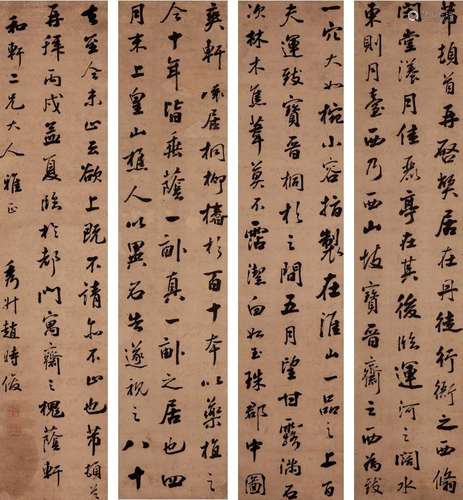 芾頓首再啓弊居在丹徒行衙之西脩
閑堂漾月佳麗亭在其後臨運河之闊水
東則月臺西乃西山故寶晉齋之西為致
一穴大如椀小容指製在淮山一品之上百
夫運致寶晉桐杉之間五月望甘露滿石
次林木蕉葦莫不霑潔白如玉珠郡中圖
爽軒環居桐柳椿杉百十本以藥植之
今十年皆垂蔭一畝真一畝之居也四
月末上皇山樵人以異石告遂視之八十
去至今未止云欲上既不請亦不止也芾頓首
再拜丙戌孟夏臨於都門寓齋之槐蔭軒
和軒二兄大人雅正
趙時俊